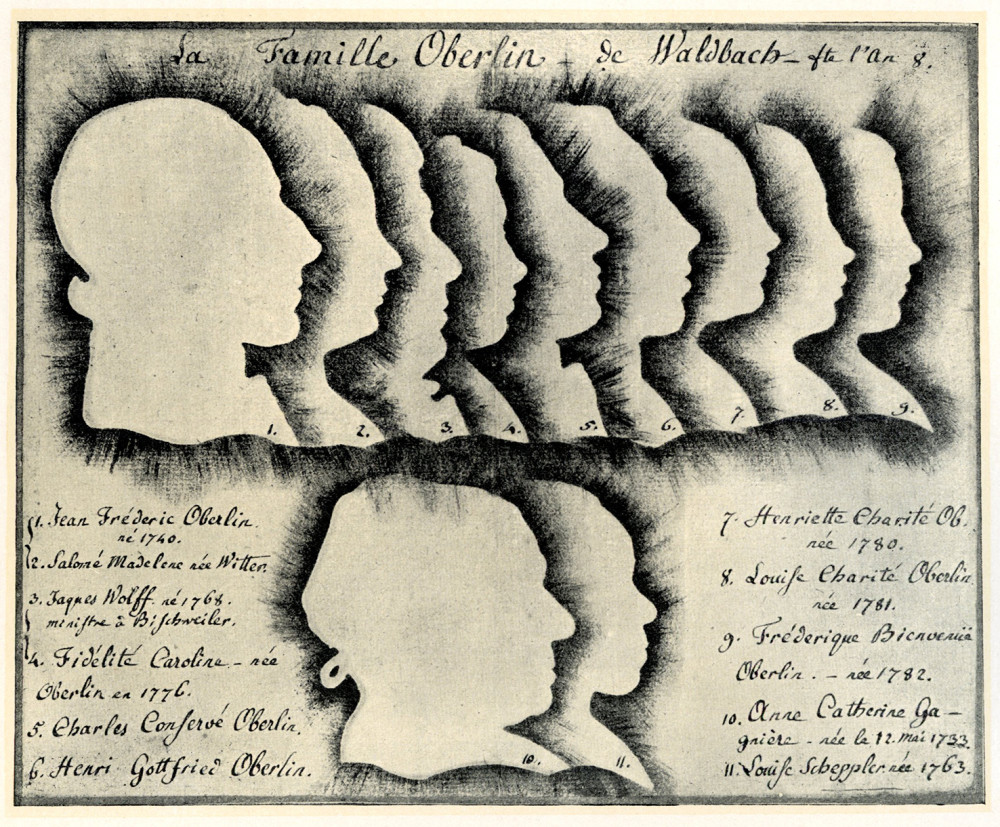 La Famille Oberlin - de Waldbach - fte l'an 8.
1.
2.
3.
4.
5.
6.
7.
8.
9.
1. Jean Fréderic Oberlin.
né 1740.
2. Salomé Madelene née Witter.
3. Jaques Wolff. né 1768.
miniſtre à Biſchweiler.
4. Fidélité Caroline - née
Oberlin en 1776.
5. Charles Conſervé Oberlin.
6. Henri Gottfried Oberlin.
10.
11.
7. Henriette Charité Ob.
née 1780.
8. Louiſe Charité Oberlin
née 1781.
9. Fréderique Bienvenüe
Oberlin. - née 1782.
10. Anne Catherine Ga-
gnière - née le 12. mai 1733.
11. Louiſe Scheppler née 1763.